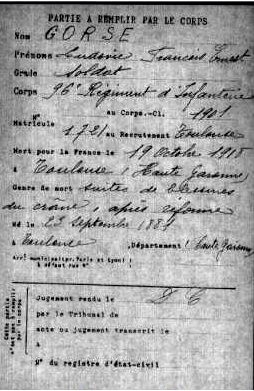 PARTIE A REMPLIR PAR LE CORPS
Nom GORSE
Prénoms Ludovic François Ernest
Grade Soldat
Corps 96e Régiment d'Infanterie
N° au Corps.-Cl. 1901
Matricule 1721 au Recrutement Toulouse
Mort pour la France le 19 Octobre 1918
à Toulouse (Haute Garonne)
Genre de mort suites de blessures
du crane, après réforme
Né le 23 Septembre 1881
à Toulouse Département Haute Garonne
Arr! municipal (pr. Paris et Lyon)
à défaut rue et N°
Cette partie n'est pas à remplir par le corps.
Jugement rendu le
par le Tribunal de
acte ou jugement transcrit le
à
N° du registre d'état-civil